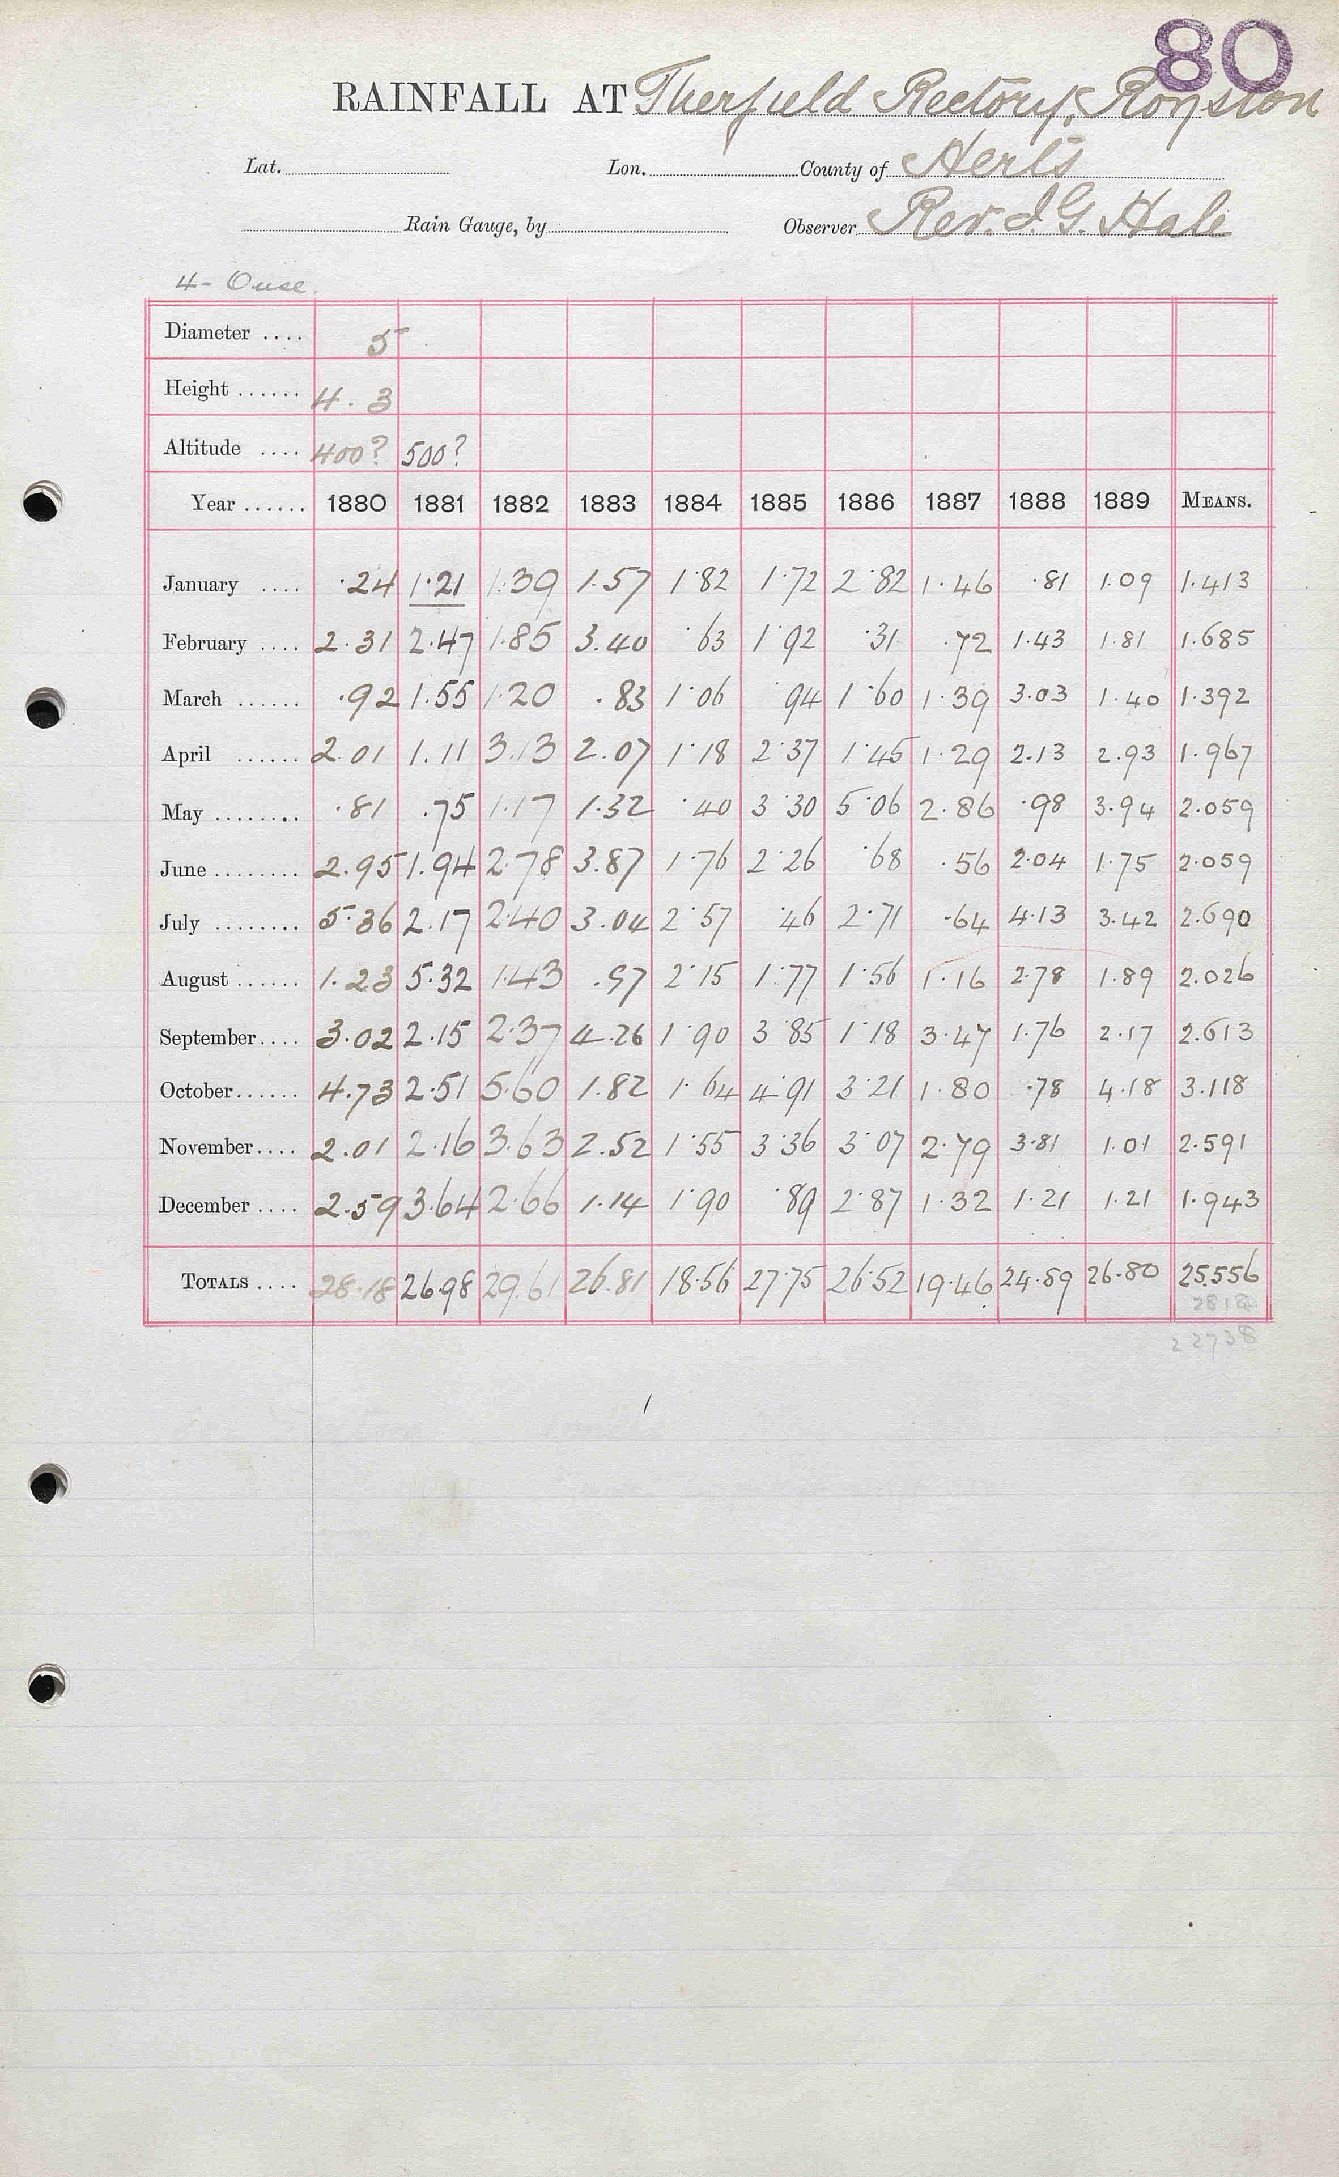 80
RAINFALL AT Therfield Rectory, Royston
Lat. Lon. County of Herts
Rain Gauge, by Observer Rev. J. G. Hale
4- Ouse.
Diameter .... 5
Height ...... 4. 3
Altitude .... 400? 500?
Year ...... 1880 1881 1882 1883 1884 1885 1886 1887 1888 1889 MEANS.
January .... .24 1.21 1.39 1.57 1.82 1.72 2.82 1.46 .81 1.09 1.413
February .... 2.31 2.47 1.85 3.40 .63 1.92 .31 .72 1.43 1.81 1.685
March ...... .92 1.55 1.20 .83 1.06 .94 1.60 1.39 3.03 1.40 1.392
April ...... 2.01 1.11 3.13 2.07 1.18 2.37 1.45 1.29 2.13 2.93 1.967
May ........ .81 .75 1.17 1.32 .40 3.30 5.06 2.86 .98 3.94 2.059
June ........ 2.95 1.94 2.78 3.87 1.76 2.26 .68 .56 2.04 1.75 2.059
July ........ 5.36 2.17 2.40 3.04 2.57 .46 2.71 .64 4.13 3.42 2.690
August ...... 1.23 5.32 1.43 .97 2.15 1.77 1.56 1.16 2.78 1.89 2.026
September.... 3.02 2.15 2.37 4.26 1.90 3.85 1.18 3.47 1.76 2.17 2.613
October...... 4.73 2.51 5.60 1.82 1.64 4.91 3.21 1.80 .78 4.18 3.118
November.... 2.01 2.16 3.63 2.52 1.55 3.36 3.07 2.79 3.81 1.01 2.591
December .... 2.59 3.64 2.66 1.14 1.90 .89 2.87 1.32 1.21 1.21 1.943
TOTALS .... 28.18 26.98 29.61 26.81 18.56 27.75 26.52 19.46 24.89 26.80 25.556
2818
22738